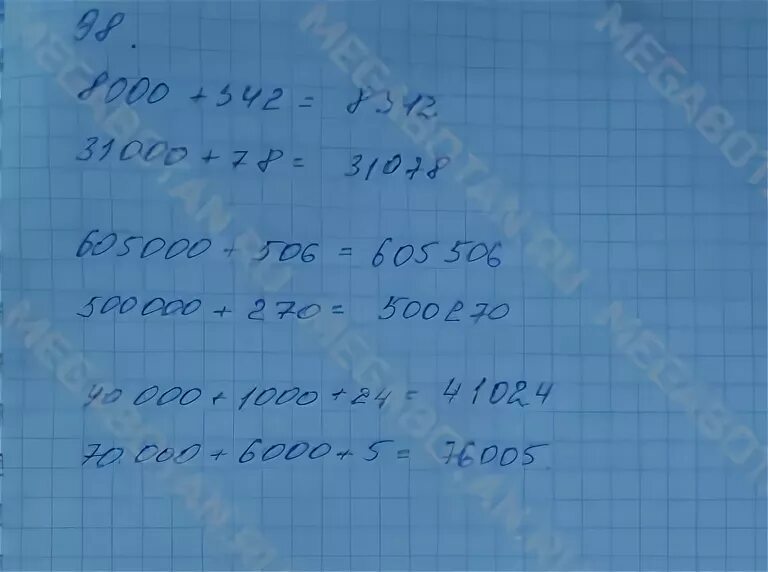 98.
8000 + 342 = 8312
31000 + 78 = 31078
605000 + 506 = 605506
500000 + 270 = 500270
40 000 + 1000 + 24 = 41024
70.000 + 6000 + 5 = 76005
MEGABOTAN.RU
MEGABOTAN.RU
MEGABOTAN.RU
MEGABOTAN.RU